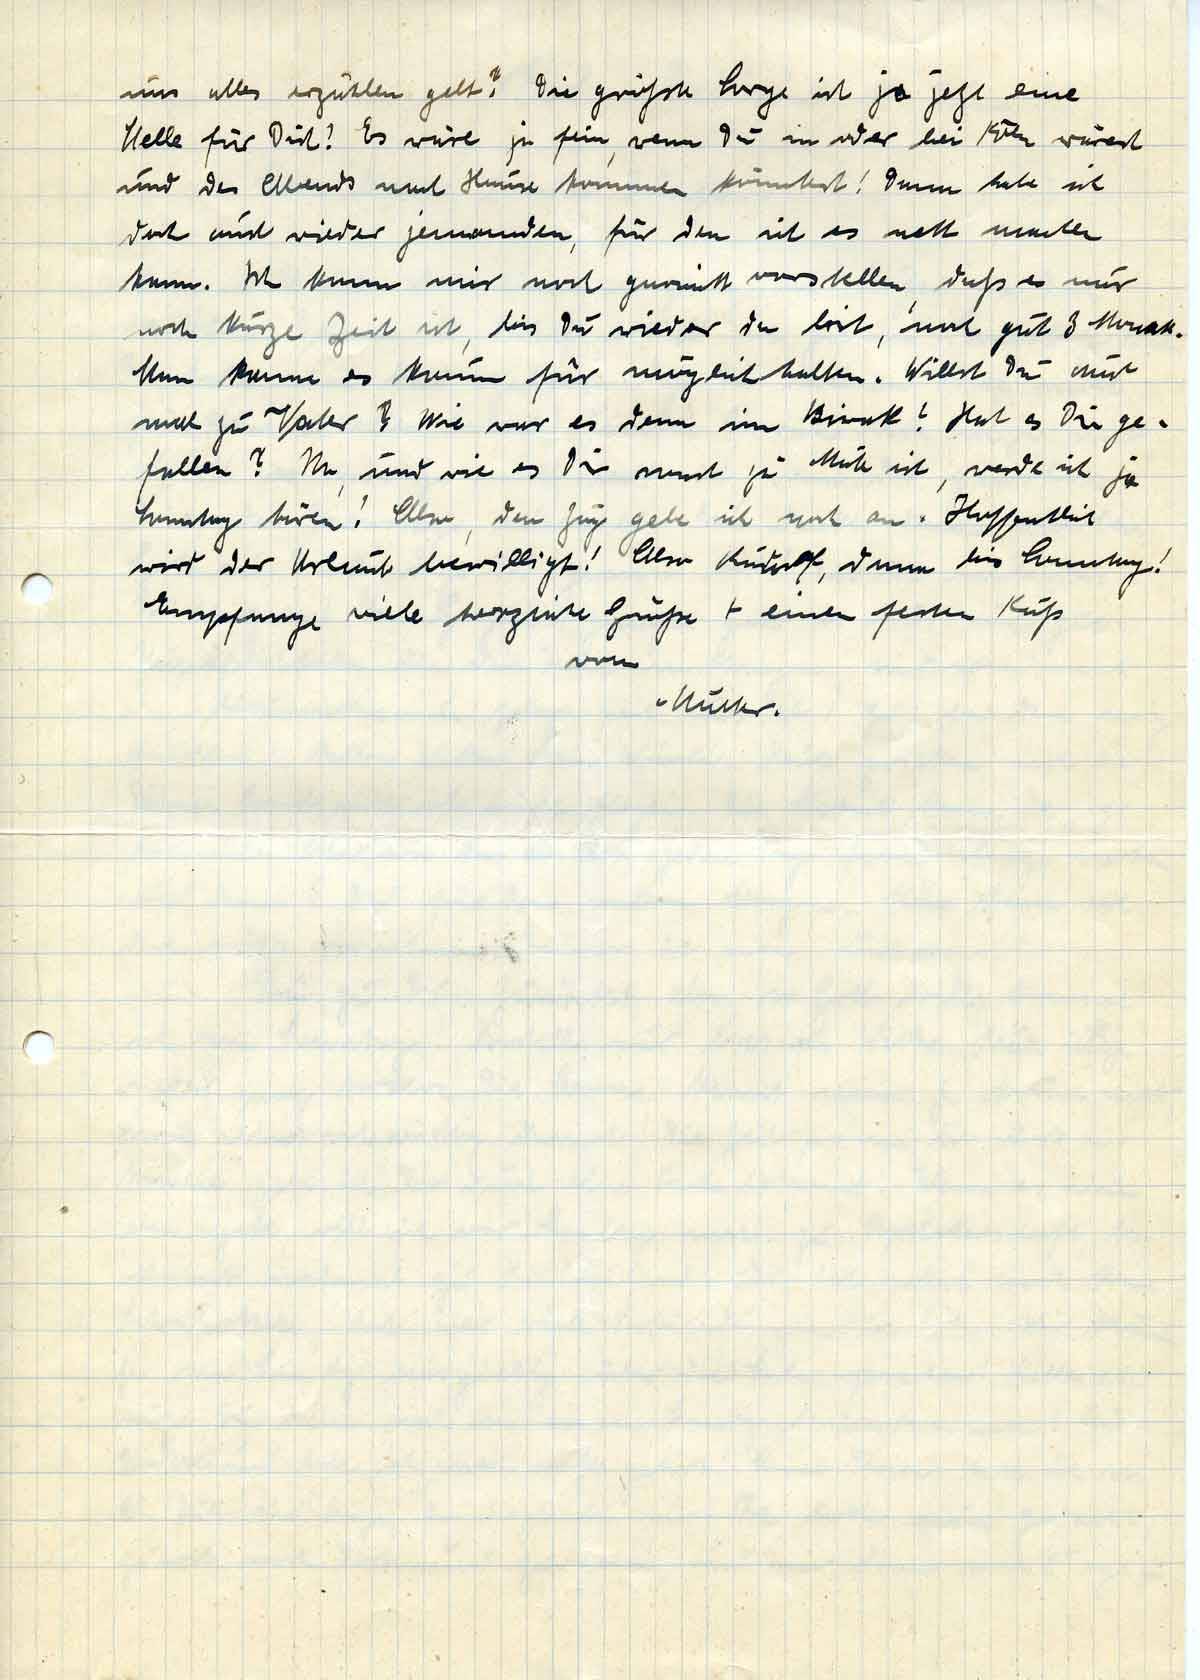 uns alles erzählen gelt? Die größte Sorge ist ja jetzt eine
Stelle für Dich! Es wäre ja fein, wenn Du in oder bei Köln wärest
und des Abends nach Hause kommen könntest! Dann habe ich
doch auch wieder jemanden, für den ich es nett machen
kann. Ich kann mir noch garnicht vorstellen, daß es nur
noch kurze Zeit ist, bis Du wieder da bist, noch gut 3 Monate.
Man kann es kaum für möglich halten. Willst Du auch
mal zu Vater? Wie war es denn im Biwak? Hat es Dir ge-
fallen? Na, und wie es Dir sonst zu Mute ist, werde ich ja
Sonntag hören! Also, den Zug gebe ich noch an. Hoffentlich
wird der Urlaub bewilligt! Also Rudolf, dann bis Sonntag!
Empfange viele herzliche Grüße + einen festen Kuß
von
Mutter.